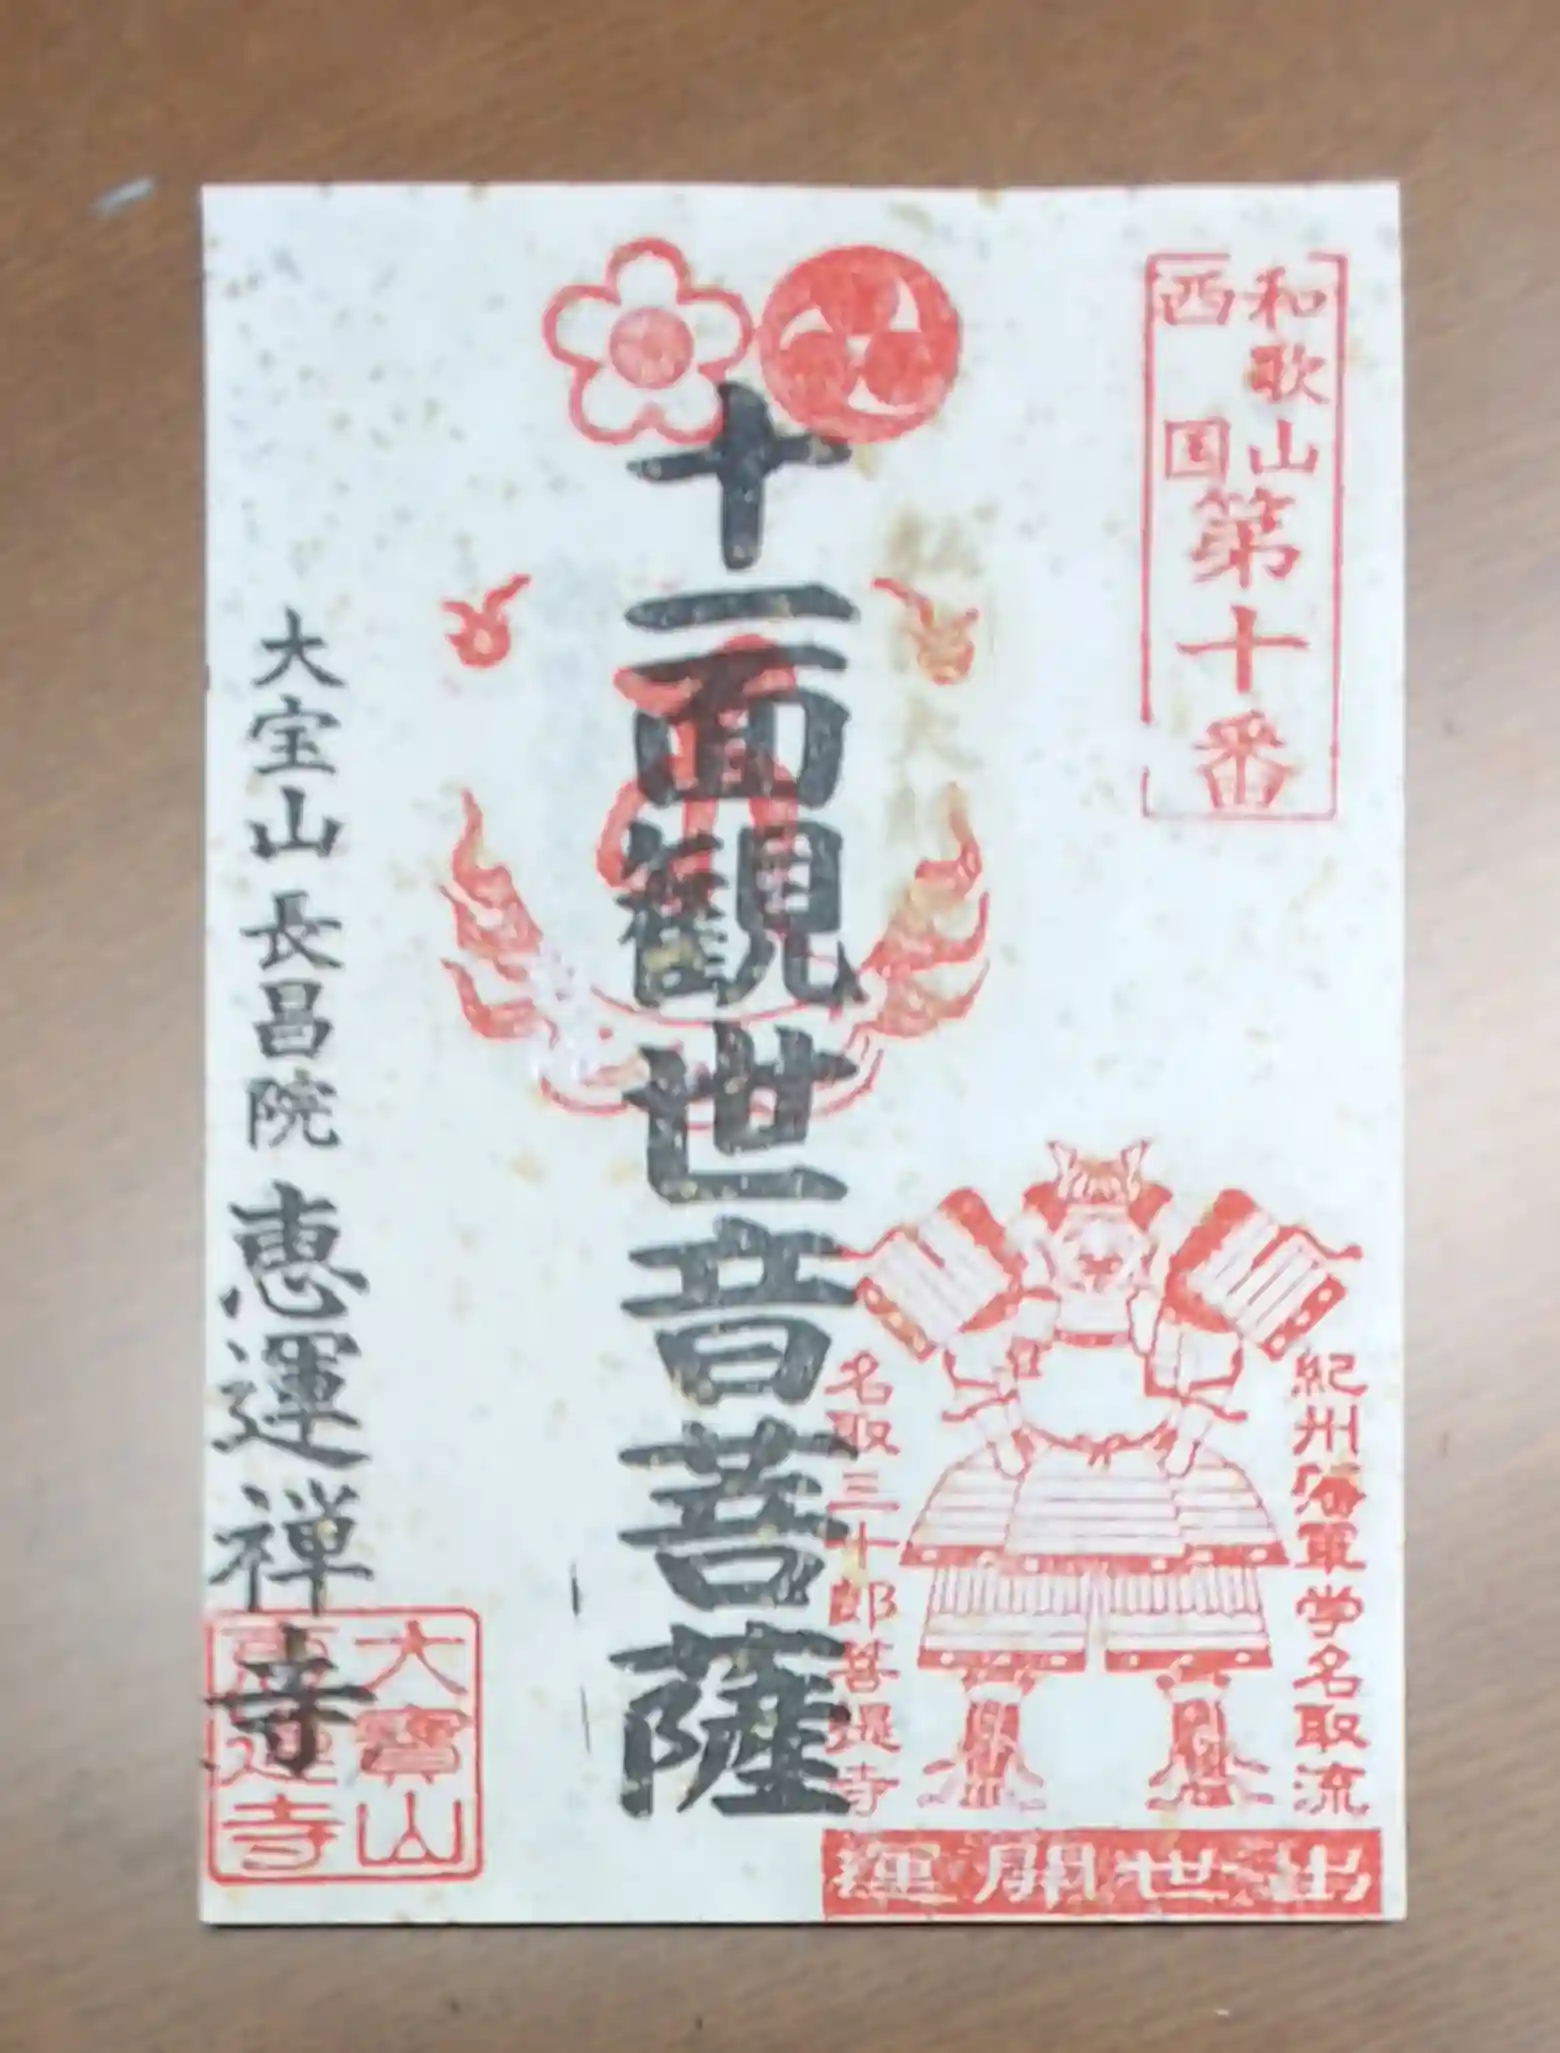 和歌山
西国
第十番
十一面観世音菩薩
紀州藩軍学名取流
名取三十郎菩提寺
出世開運
大宝山 長昌院 恵運禅寺
大寶山
恵運寺